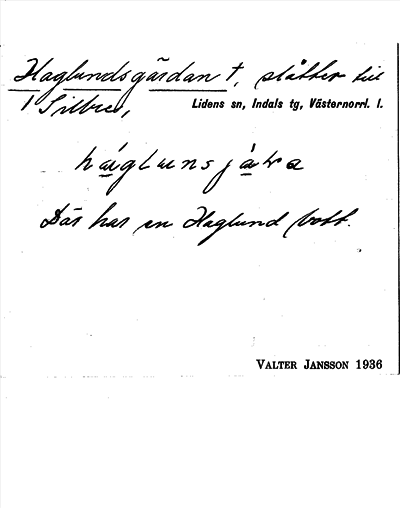 Haglundsgärdan †, slåtter till
1 Sillre, Lidens sn, Indals tg, Västernorrl. l.
háglunsjàra
Där har en Haglund bott.
VALTER JANSSON 1936